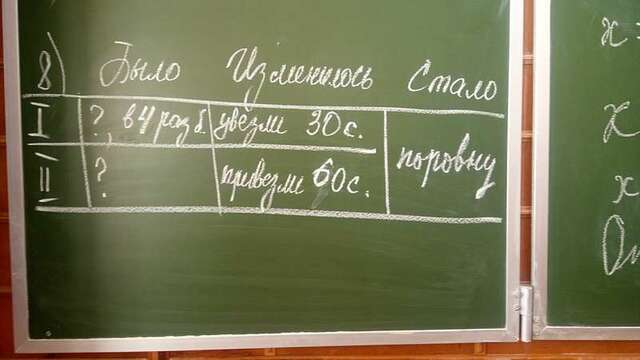 8) Было Изменилось Стало
I ?, в 4 раз б. увезли 30 с. поровну
II ? привезли 60 с.
x =
x
x
От